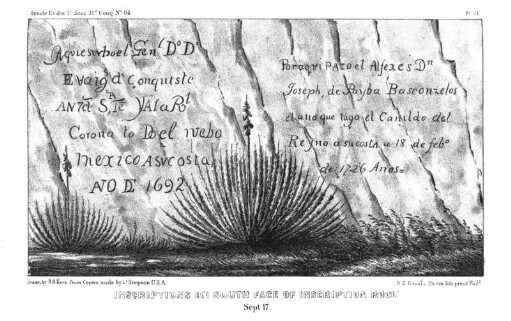 Senate Ex. Doc. 1st Sess. 31st Cong. No. 64
Pl. 71
Aqui estubo el Genl. Dn. D
E Vargs. d Conquisto
ANTd S. FE YALa Rl.
Corona to Del nuebo
Mexico ASUCOSta
ANO DE 1692
Por aqui PAzo el Alferes Dn
Joseph, de Payba Basconzelos
el ano que tujo el Cauildo del
Reyno a su costa a 18 de febo
de 1726 Anos=
Drawn by R.H. Kern, from Copies made by Lt. Simpson U.S.A.
INSCRIPTIONS ON SOUTH FACE OF INSCRIPTION ROCK
Sept 17.